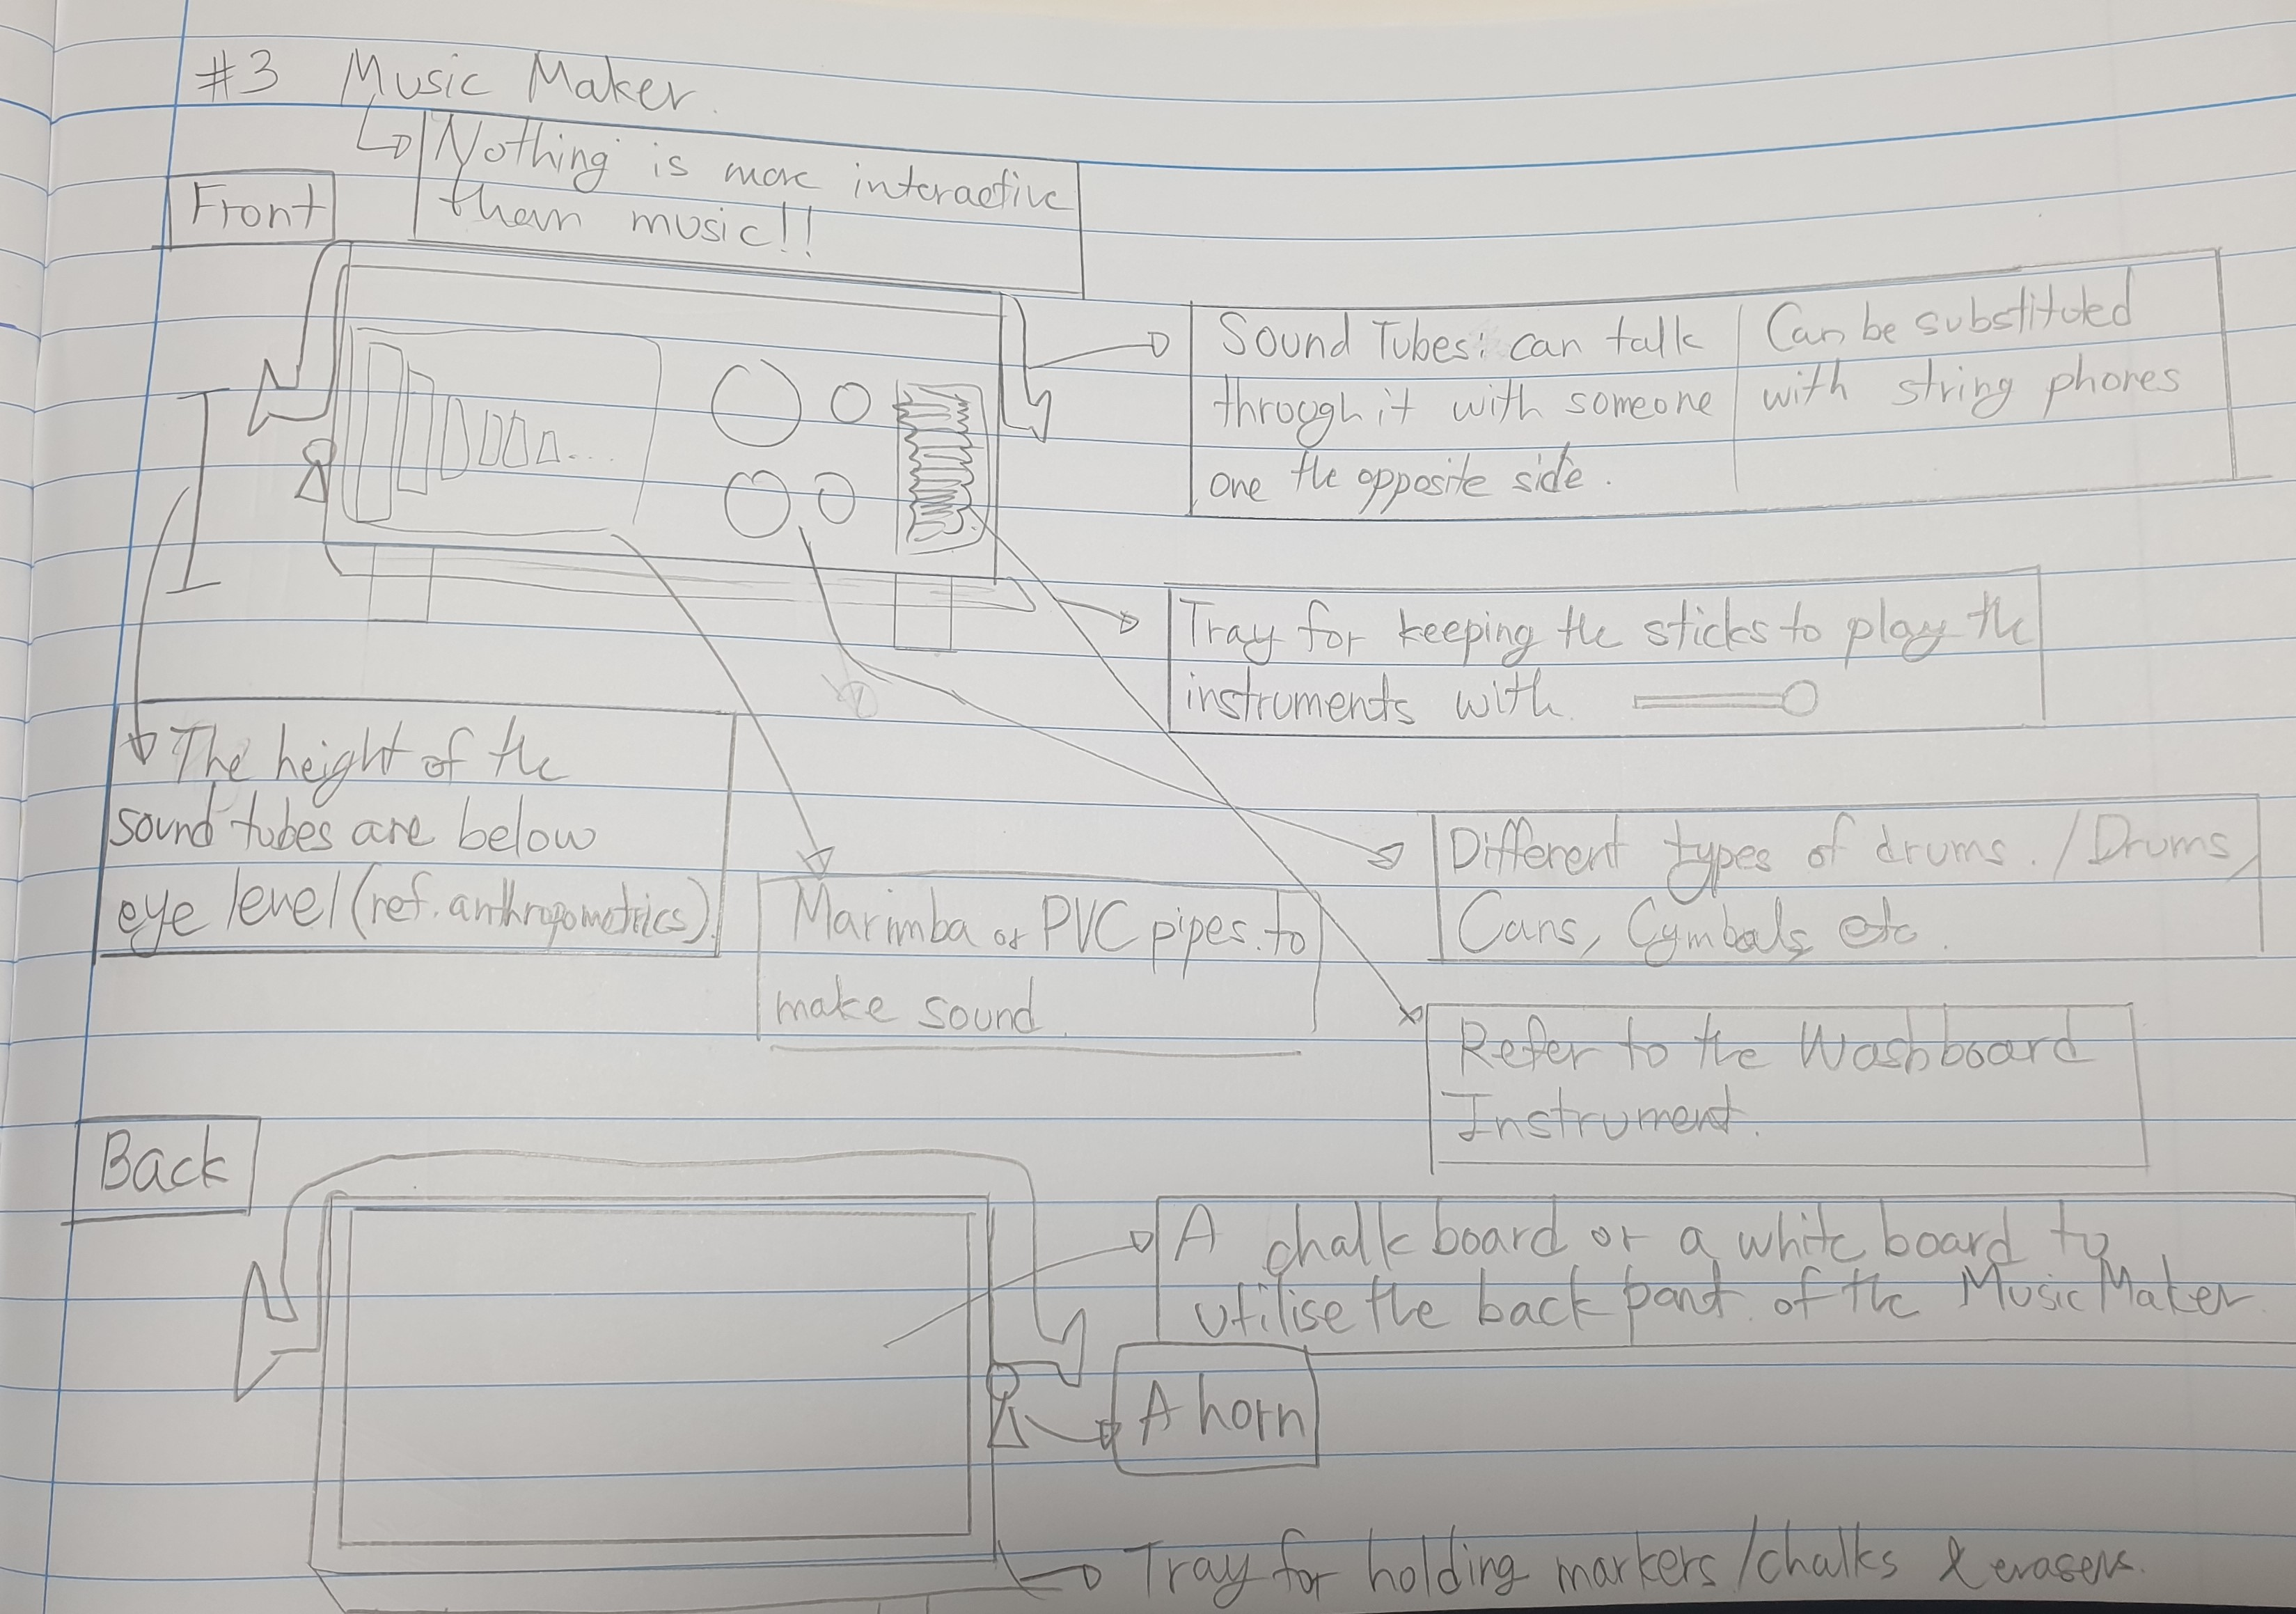 #3 Music Maker.
Nothing is more interactive
than music!!
Front
Sound Tubes: can talk
through it with someone
one the opposite side.
Can be substituted
with string phones
Tray for keeping the sticks to play the
instruments with.
The height of the
sound tubes are below
eye level (ref. anthropometrics).
Marimba or PVC pipes. to
make sound.
Different types of drums. / Drums,
Cans, Cymbals, etc.
Refer to the Washboard
Instrument.
Back
A chalk board or a white board to
utilise the back part of the Music Maker.
A horn
Tray for holding markers/chalks & erasers.